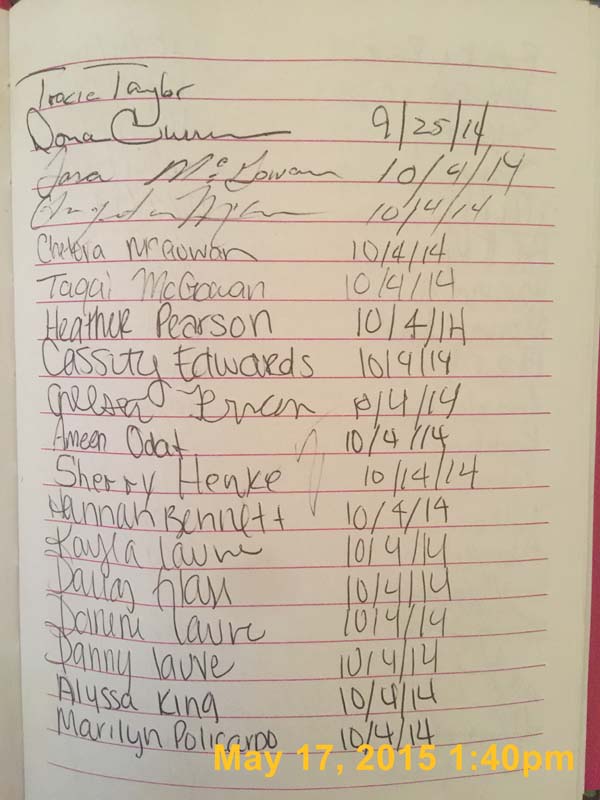 Tracie Taylor
Dona 9/25/14
Tara McGowan 10/4/14
10/4/14
Chelsea McGowan 10/4/14
Tagai McGowan 10/4/14
Heather Pearson 10/4/14
Cassity Edwards 10/4/14
10/4/14
Ameen Odat 10/4/14
Sherry Henke 10/14/14
Hannah Bennett 10/4/14
Kayla Laure 10/4/14
Dallas 10/4/14
Laure 10/4/14
Danny Laure 10/4/14
Alyssa King 10/4/14
Marilyn Policarpo 10/4/14
May 17, 2015 1:40pm